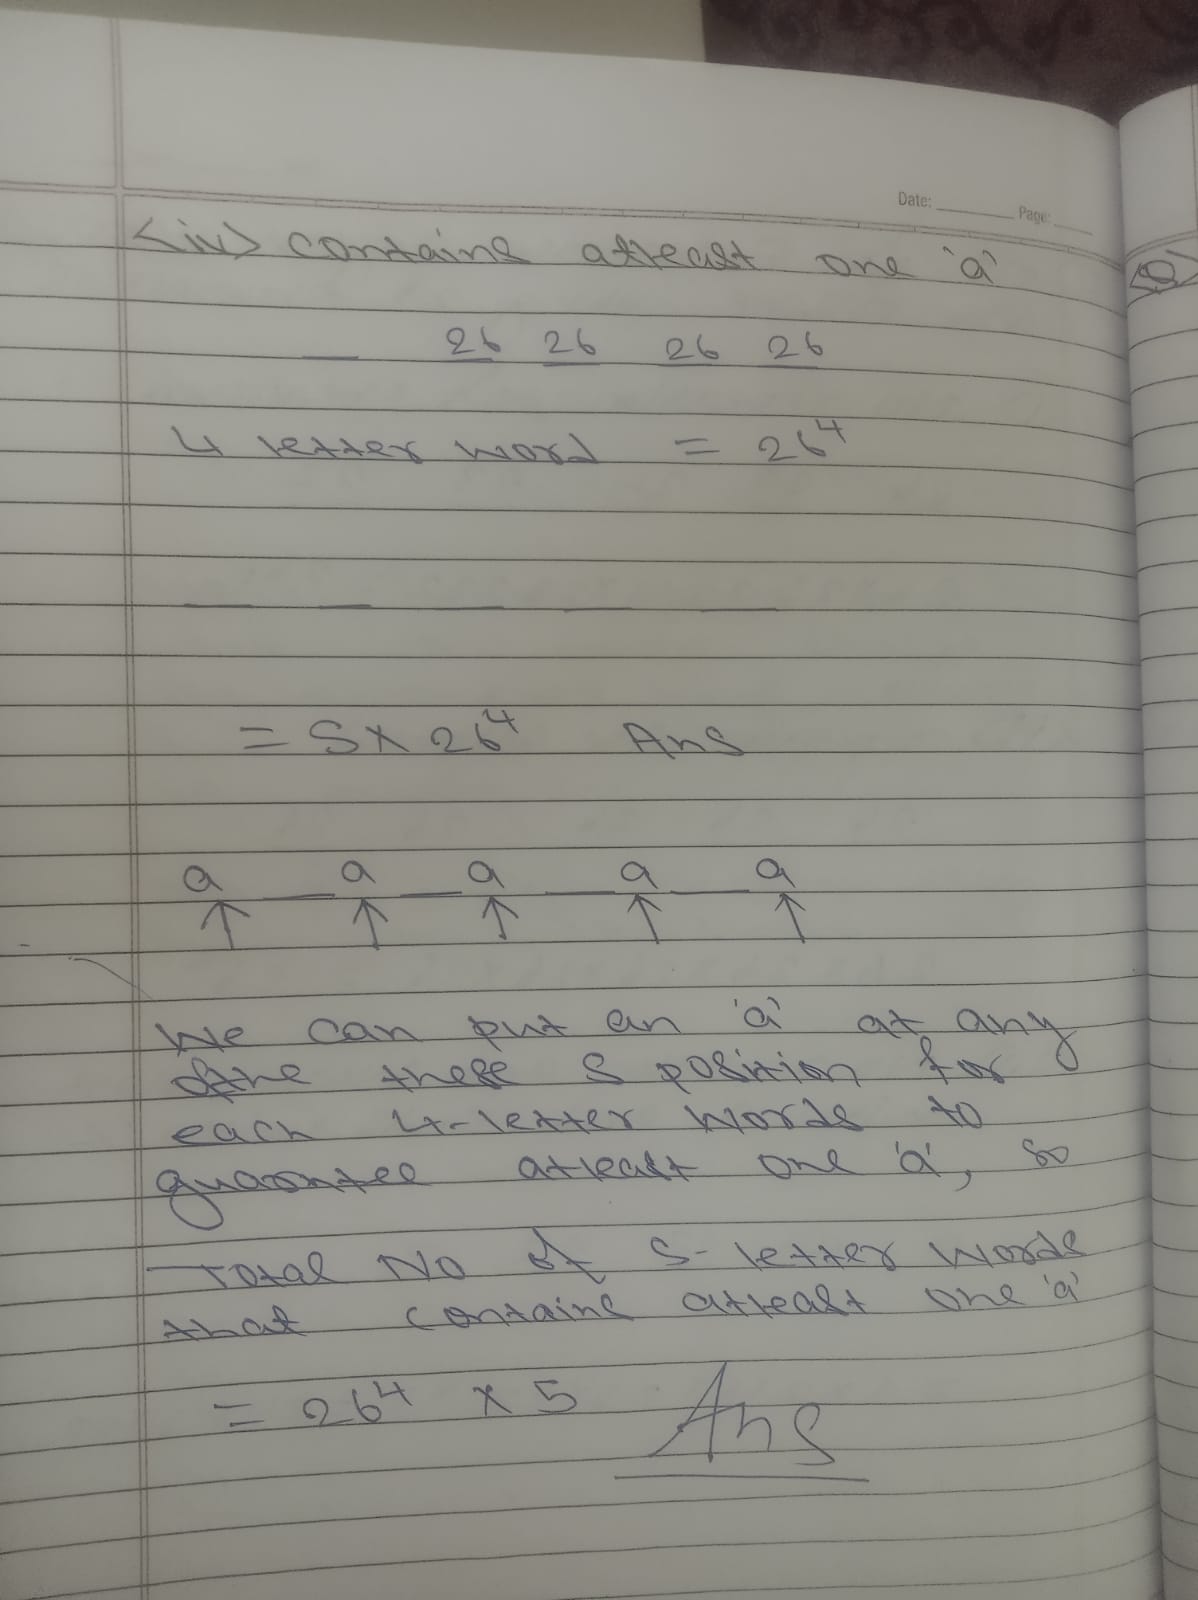 Date: Page:
<iv> contains atleast one 'a'
26 26 26 26
4 letter word = 26^4
= 5 x 26^4 Ans
a a a a a
↑ ↑ ↑ ↑ ↑
We can put an 'a' at any
these 5 position for
each 4-letter words to
guarantee atleast one 'a', so
Total No of 5-letter words
that contains atleast one 'a'
= 26^4 x 5 Ans